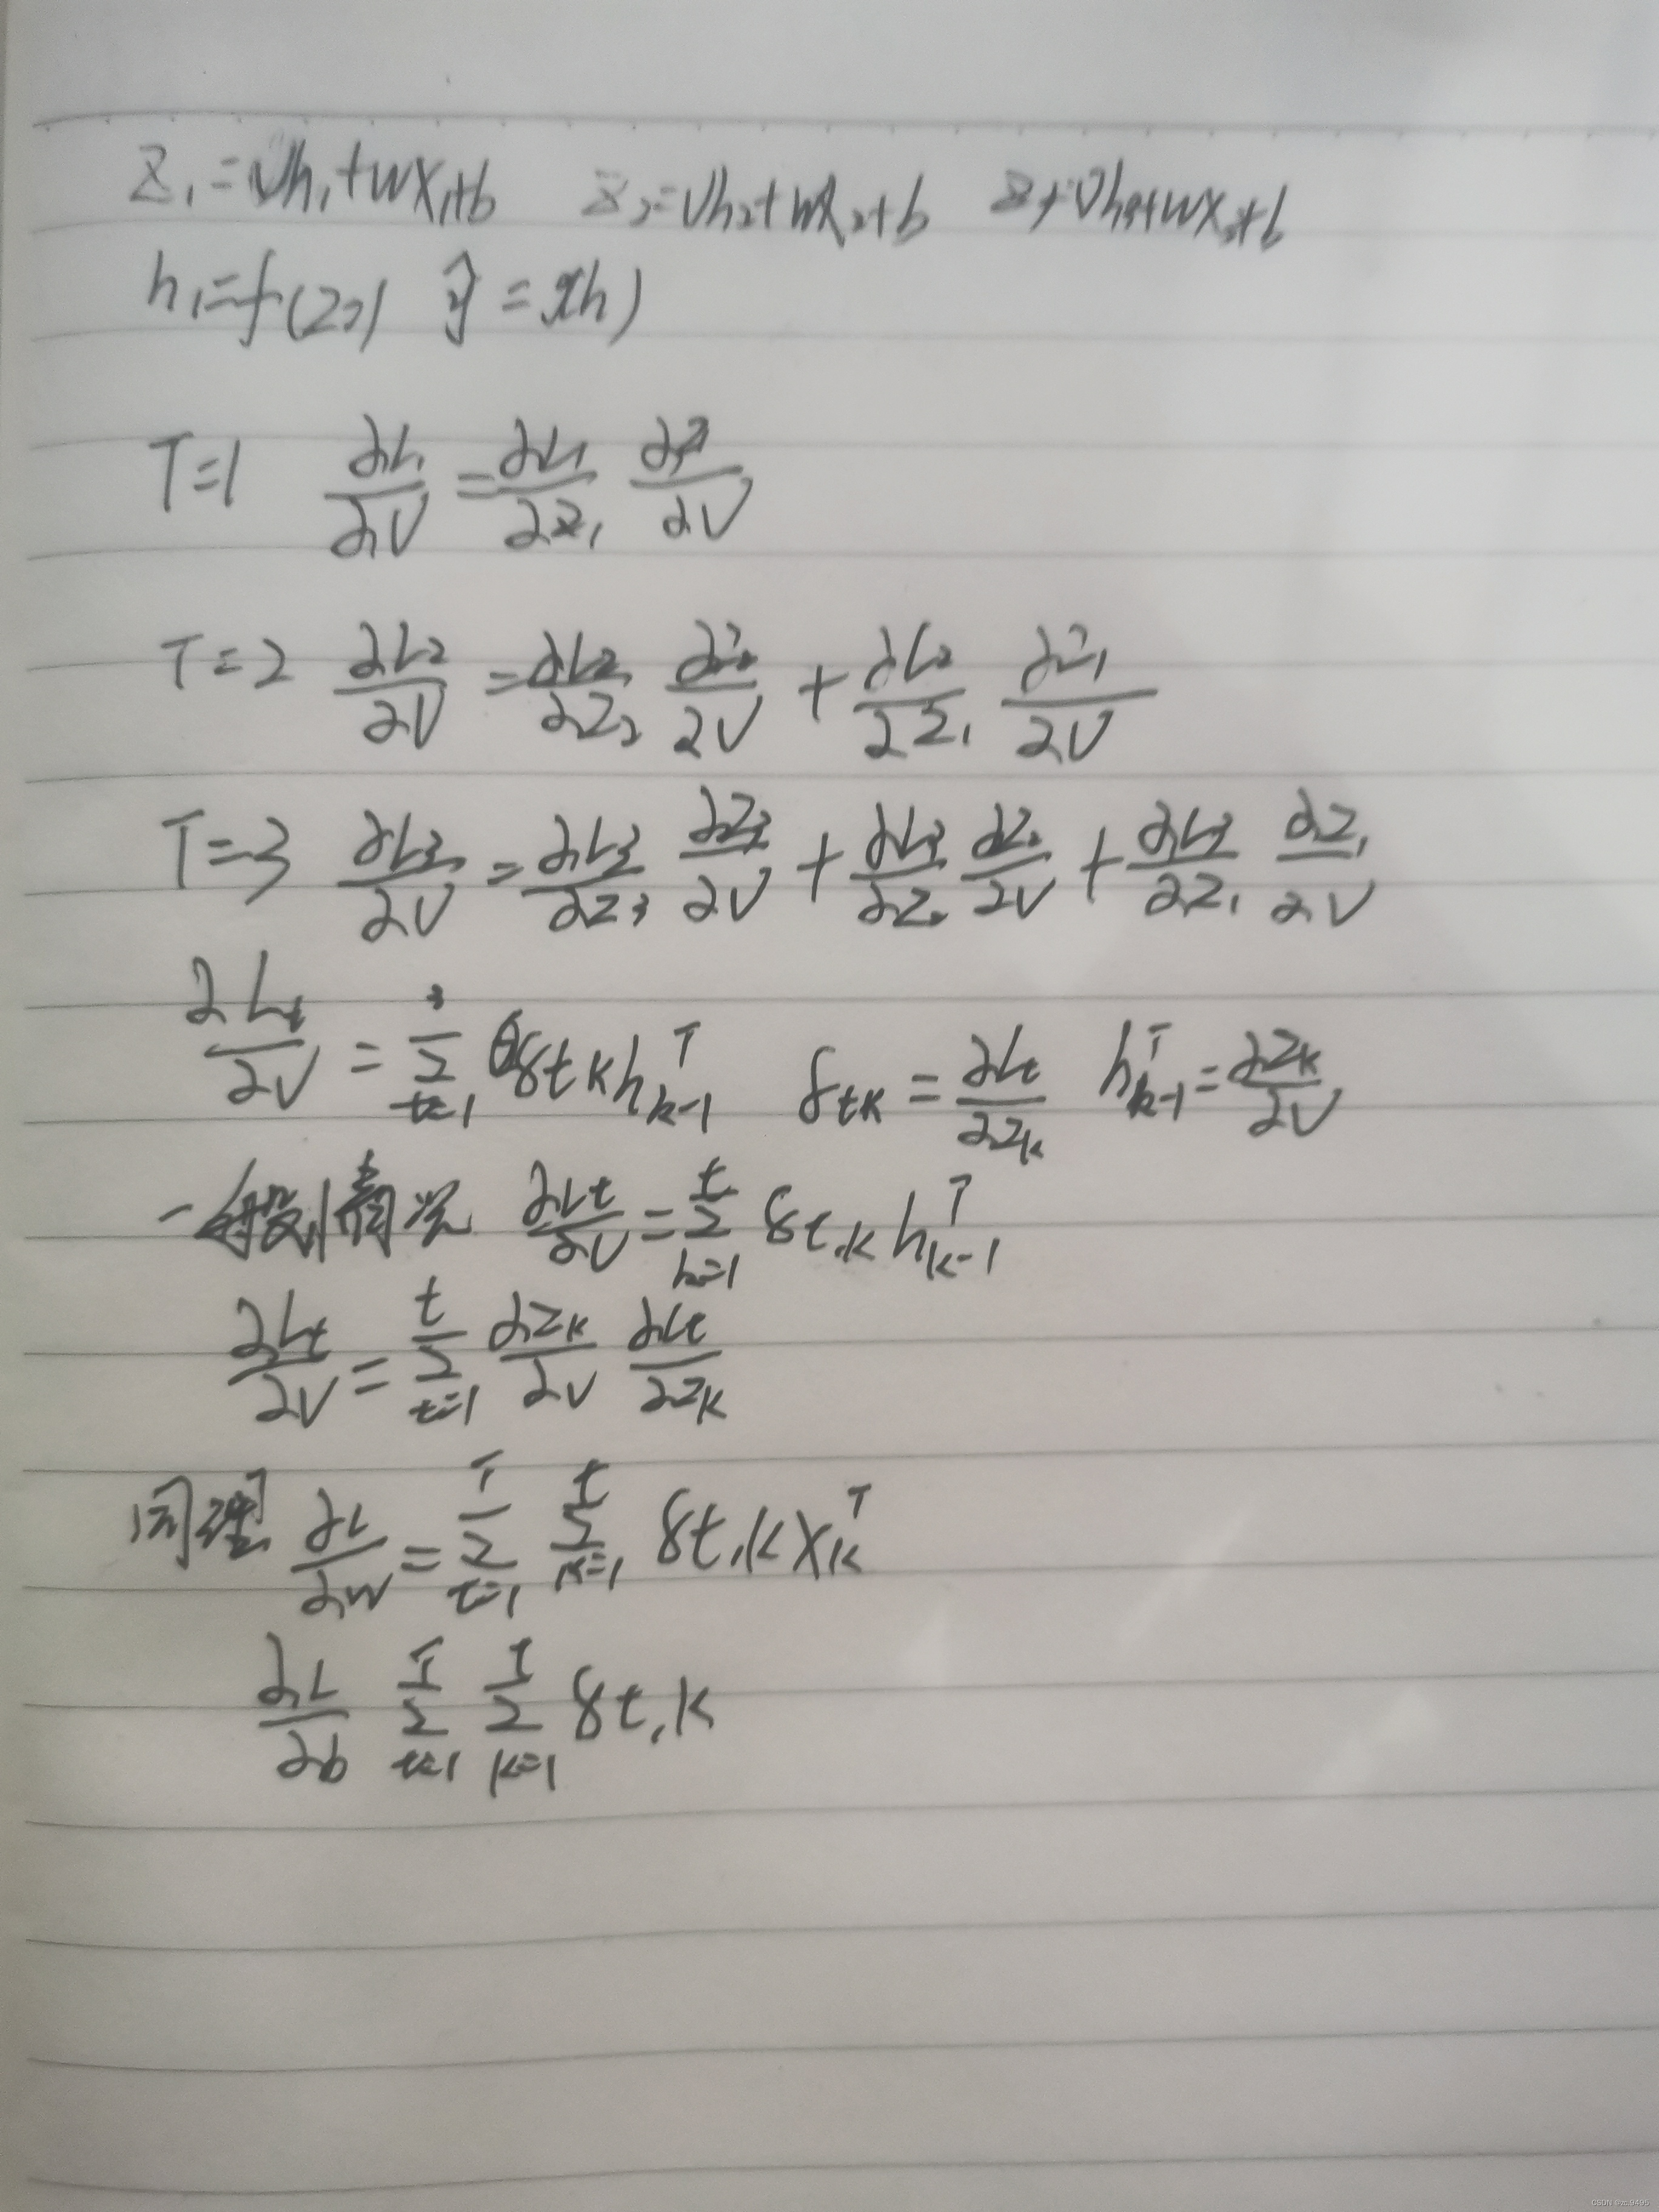 z₁=Uh₁+wx₁+b z₂=Uh₂+wx₂+b z₃=Uh₃+wx₃+b
h₁=f(z₂) ŷ=g(h)
T=1 ∂L₁/∂U=∂L₁/∂z₁ ∂z/∂U
T=2 ∂L₂/∂U=∂L₂/∂z₂ ∂z₂/∂U+∂L₂/∂z₁ ∂z₁/∂U
T=3 ∂L₃/∂U=∂L₃/∂z₃ ∂z₃/∂U+∂L₃/∂z₂ ∂z₂/∂U+∂L₃/∂z₁ ∂z₁/∂U
∂Lt/∂U=∑_{t=1}^{3} δtkh_{k-1}^T δtk=∂Lt/∂zk h_{k-1}^T=∂zk/∂U
一般情况 ∂Lt/∂U=∑_{k=1}^{t} δt,k h_{k-1}^T
∂Lt/∂U=∑_{t=1}^{t} ∂zk/∂U ∂Lt/∂zk
同理 ∂L/∂w=∑_{t=1}^{T} ∑_{k=1}^{t} δt,k x_k^T
∂L/∂b ∑_{t=1}^{T} ∑_{k=1}^{t} δt,k